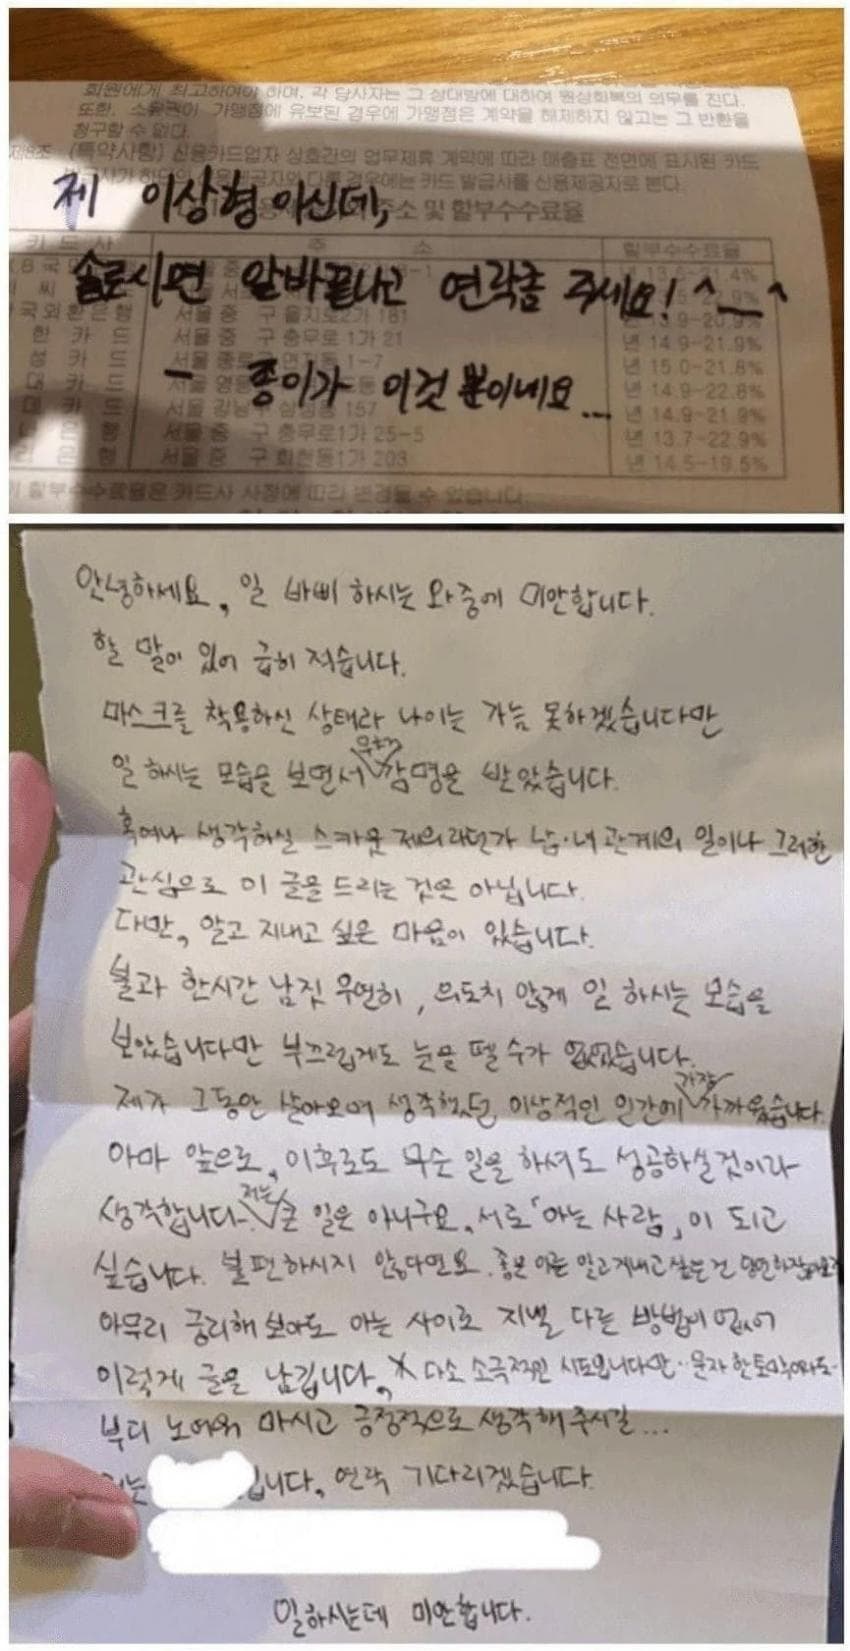 회원에게 최고하여야 하며, 각 당사자는 그 상대방에 대하여 원상회복의 의무를 진다.
또한, 소유권이 가맹점에 유보된 경우에 가맹점은 계약을 해제하지 않고는 그 반환을
청구할 수 없다.
(특약사항) 신용카드업자 상호간의 업무제휴 계약에 따라 매출표 전면에 표시된 카드
다른 경우에는 카드 발급사를 신용제공자로 본다.
제 이상형이신데,
주소 및 할부수수료율
카 드 사 주 소 할부수수료율
솔로시면 알바끝나고 연락좀 주세요! ^__^
국외환은행 서울 중 구 을지로2가 181
한 카 드 서울 중 구 충무로 1가 21 년 14.9-21.9%
성 카 드 1-7 년 15.0-21.8%
- 종이가 이것 뿐이네요...
대 카 드 년 14.9-22.8%
서울 강남구 157 년 14.9-21.9%
은 행 서울 중 구 충무로1가 25-5 년 13.7-22.9%
은 행 서울 중 구 회현동1가 203 년 14.5-19.5%
할부수수료율은 카드사 사정에 따라 변경될 수 있습니다.
안녕하세요, 일 바삐 하시는 와중에 미안합니다.
할 말이 있어 급히 적습니다.
마스크를 착용하신 상태라 나이는 가늠 못하겠습니다만
일 하시는 모습을 보면서 무척 감명을 받았습니다.
혹여나 생각하실 스카웃 제의라던가 남·녀 관계의 일이나 그러한
관심으로 이 글을 드리는 것은 아닙니다.
다만, 알고 지내고 싶은 마음이 있습니다.
불과 한시간 남짓 우연히, 의도치 않게 일 하시는 모습을
보았습니다만 부끄럽게도 눈을 뗄 수가 없었습니다.
제가 그동안 살아오며 생각했던 이상적인 인간에 가장 가까웠습니다.
아마 앞으로, 이후로도 무슨 일을 하셔도 성공하실것이라
생각합니다. 저는 큰 일은 아니구요, 서로 「아는 사람」이 되고
싶습니다. 불편하시지 않다면요. 좋은 이를 알고지내고 싶은건 당연하잖아요?
아무리 궁리해 보아도 아는 사이로 지낼 다른 방법이 없어
이렇게 글을 남깁니다. * 다소 소극적인 시도입니다만.. 문자 한토막이라도..
부디 노여워 마시고 긍정적으로 생각해 주시길...
저는 입니다. 연락 기다리겠습니다.
일하시는데 미안합니다.